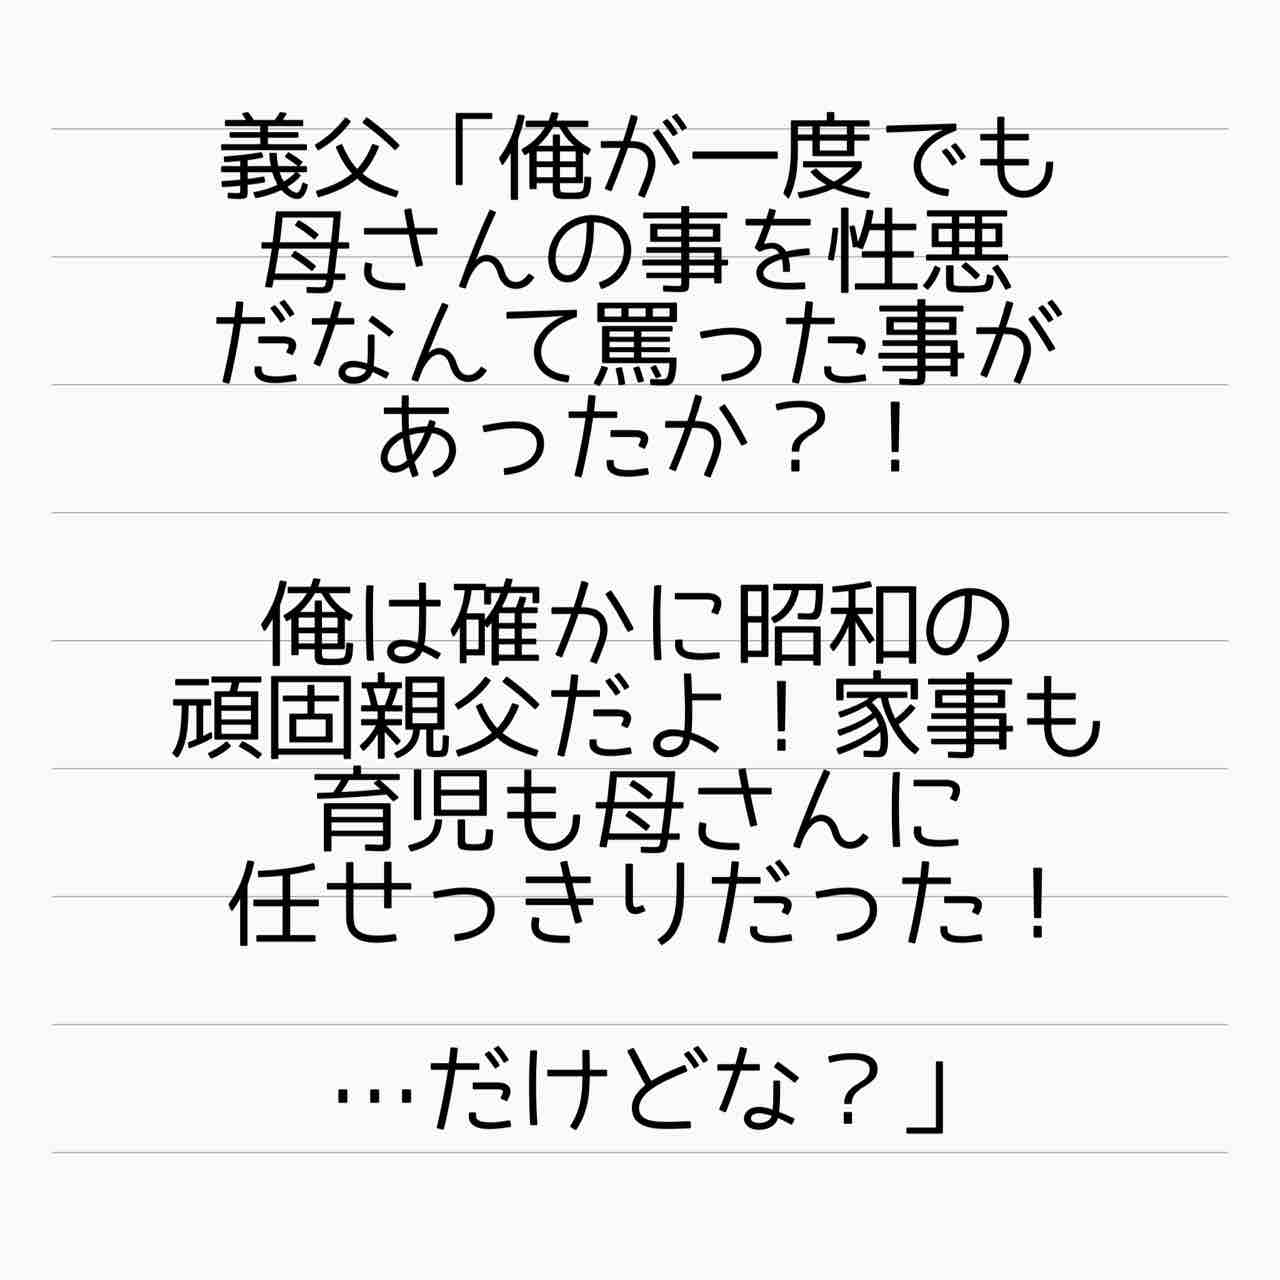 義父「俺が一度でも
母さんの事を性悪
だなんて罵った事が
あったか？！
俺は確かに昭和の
頑固親父だよ！家事も
育児も母さんに
任せっきりだった！
…だけどな？」